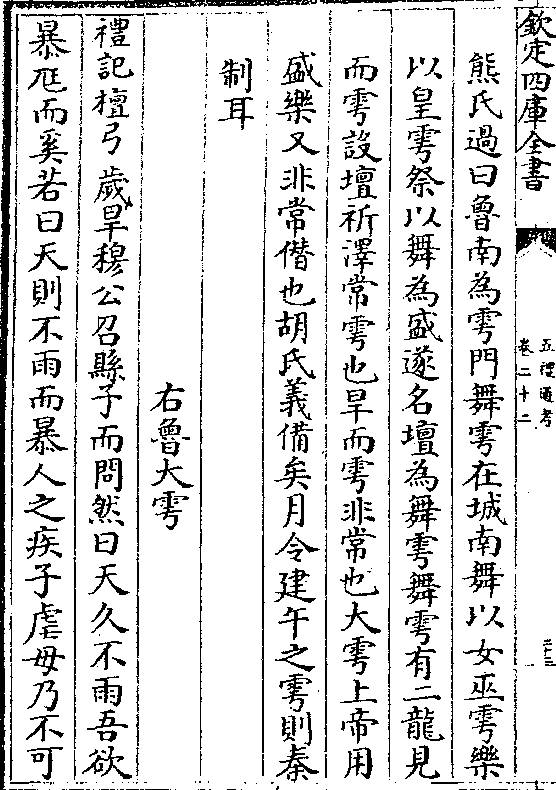 欽定四庫全書
五禮通考
卷二十二
三十三
熊氏過曰魯南為雩門舞雩在城南舞以女巫雩樂
以皇雩祭以舞為盛遂名壇為舞雩舞雩有二龍見
而雩設壇祈澤常雩也旱而雩非常也大雩上帝用
盛樂又非常僭也胡氏義備矣月令建午之雩則秦
制耳
右魯大雩
禮記檀弓歲旱穆公召縣子而問然曰天久不雨吾欲
暴尫而奚若曰天則不雨而暴人之疾子虐毋乃不可